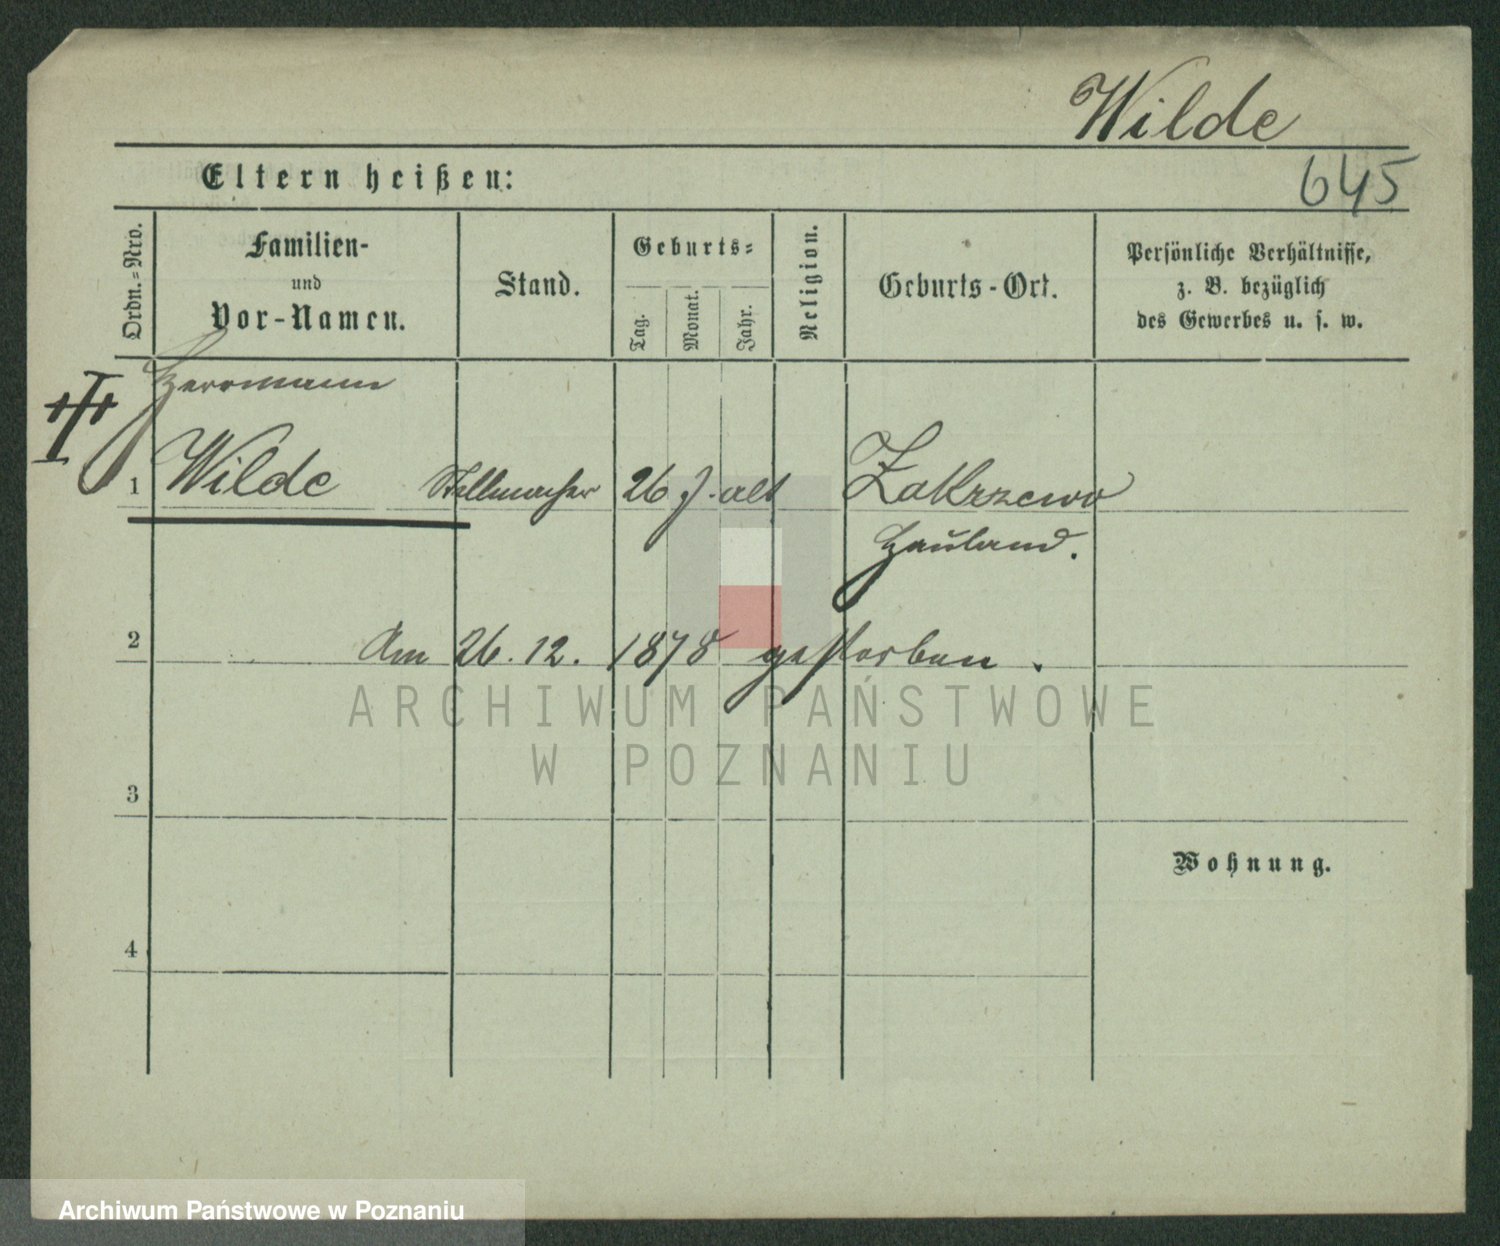 Wilde
645
Eltern heißen:
Ordn.=Nro.
Familien-
und
Vor-Namen.
Stand.
Geburts=
Tag.
Monat.
Jahr.
Religion.
Geburts-Ort.
Persönliche Verhältnisse,
z. B. bezüglich
des Gewerbes u. s. w.
Herrmann
1 Wilde Stellmacher 26 J. alt Zakrzewo
Hauland.
2 Am 26. 12. 1878 gestorben.
ARCHIWUM PAŃSTWOWE
W POZNANIU
3
Wohnung.
4
Archiwum Państwowe w Poznaniu